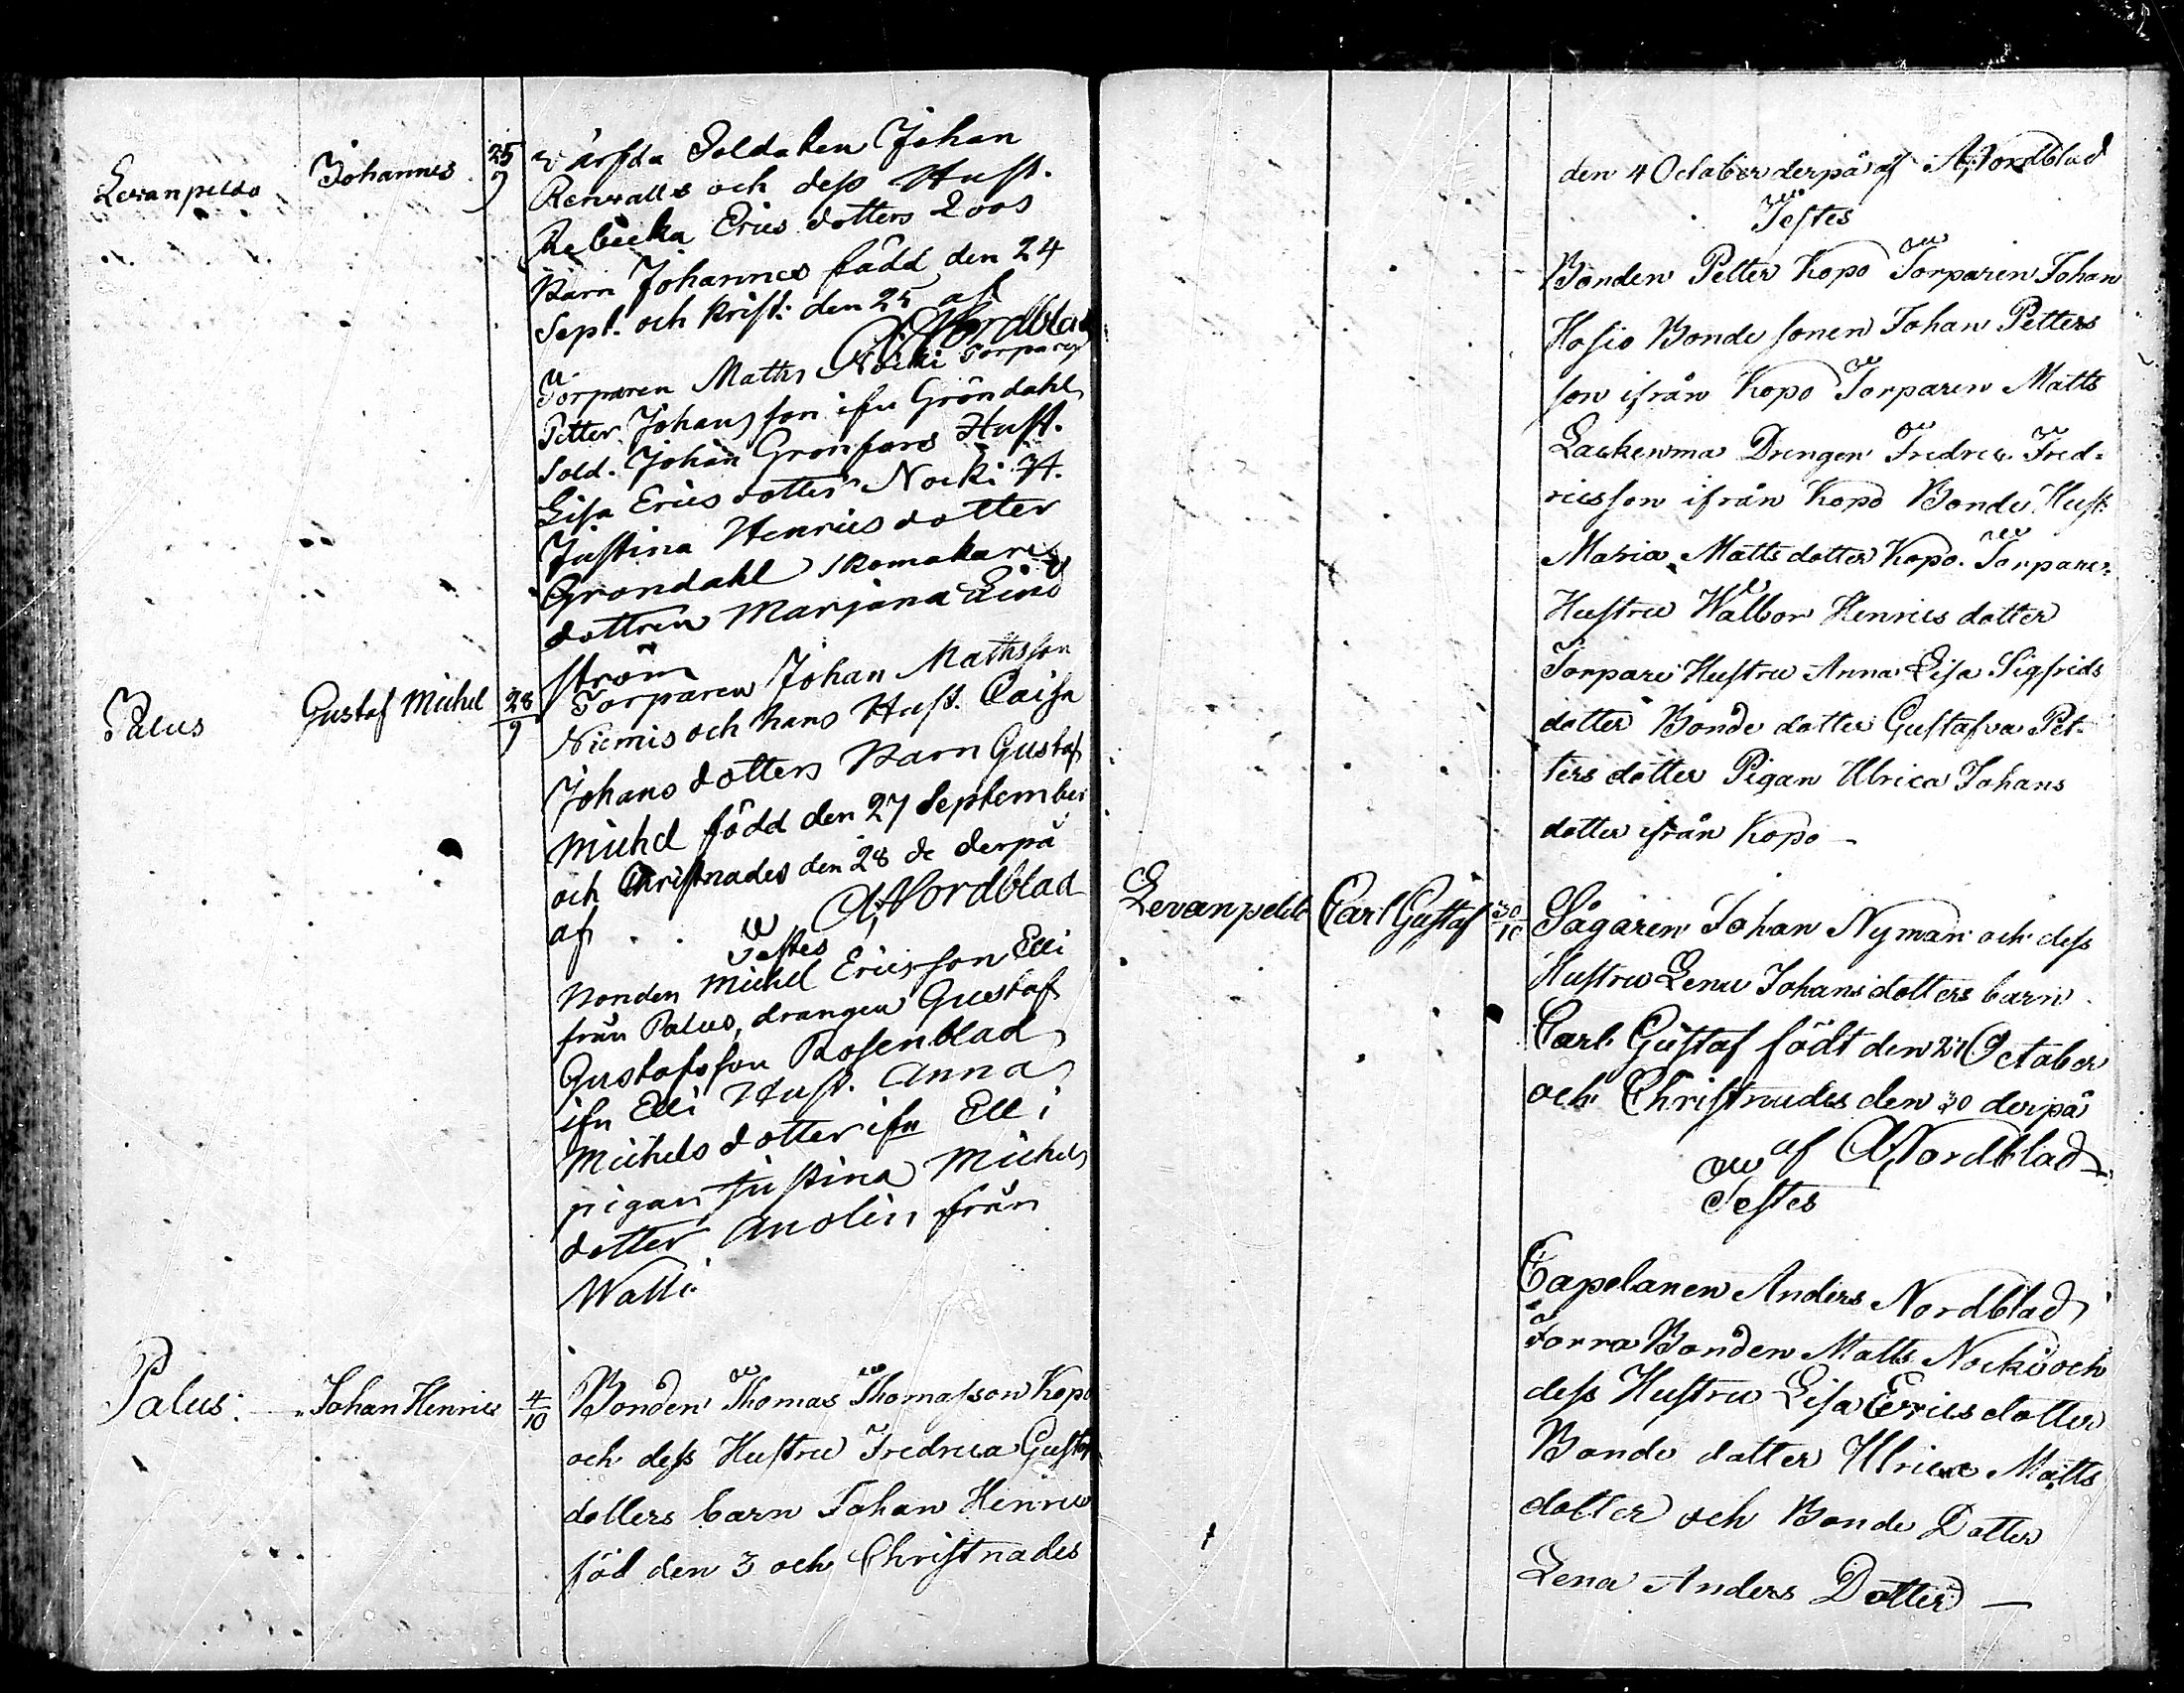 Levanpeldo Johannes 25/9 värfda Soldaten Johan
Renvalls och dess Hust.
Rebecka Erics dotters Loos
Barn Johannes född den 24
Sept. och krist: den 25 af
A Nordblad
Torparen Matts Nocki Torparen
Petter Johansson ifn Gröndahl
Sold. Johan Gronfors Hust.
Lisa Erics dotter Nocki H.
Justina Henrics dotter
Grondahl Skomakare
dottren Marjana Lind
ström
Palus Gustaf Michel 28/9 Torparen Johan Mathsson
Niemis och hans Hust. Caisa
Johans dotters Barn Gustaf
Michel född den 27 September
och Christnades den 28 de derpå
af A Nordblad
Testes
Bonden Michel Ericsson Elli
från Palus, drangen Gustaf
Gustafsson Rosenblad
ifn Elli Hust. Anna
Michels dotter ifn Elli
pigan Justina Michels
dotter Anolin från
Walli
Palus: Johan Henric 4/10 Bonden Thomas Thomasson Kopo
och dess Hustru Fredrica Gustaf
dotters barn Johan Henric
föd den 3 och Christnades
den 4 October derpå af A Nordblad
Testes
Bonden Petter Kopo Torparen Johan
Kosio Bonde sonen Johan Petters
son ifrån Kopo Torparen Matts
Lackenma Drengen Fredric Fred-
ricsson ifrån Kopo Bonde Hust:
Maria Matts dotter Kopo. Torpare-
Hustru Walbor Henrics dotter
Torpare Hustru Anna Lisa Sigfrids
dotter Bonde dotter Gustafva Pet-
ters dotter Pigan Ulrica Johans
dotter ifrån Kopo -
Levanpeldo Carl Gustaf 30/10 Sågaren Johan Nyman och dess
Hustru Lena Johans dotters barn
Carl Gustaf födt den 27 October
och Christnades den 30 derpå
af A Nordblad
Testes
Capelanen Anders Nordblad
Forra Bonden Matts Nocki och
dess Hustru Lisa Erics dotter
Bonde dotter Ulrica Matts
dotter och Bonde Dotter
Lena Anders Dotter —